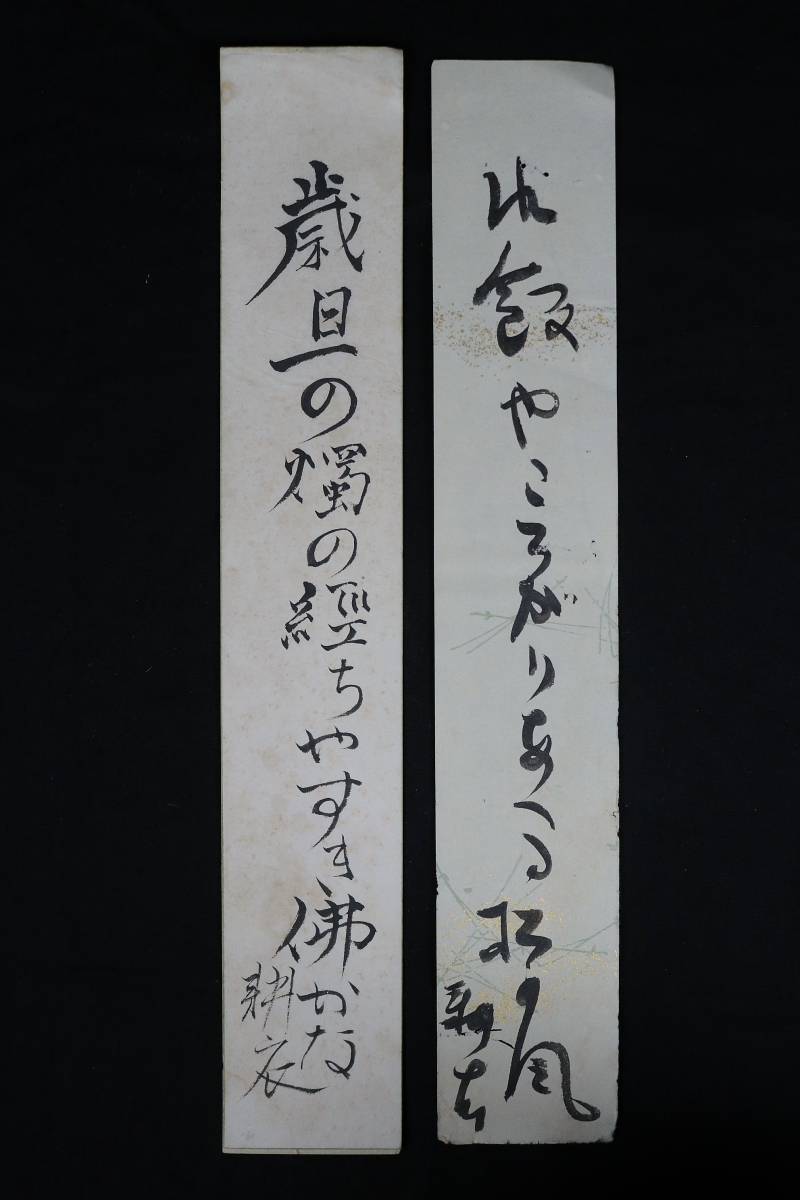 水飯やころがりあへる松の風
耕衣
歳旦の燭の經ちやすき佛かな
耕衣